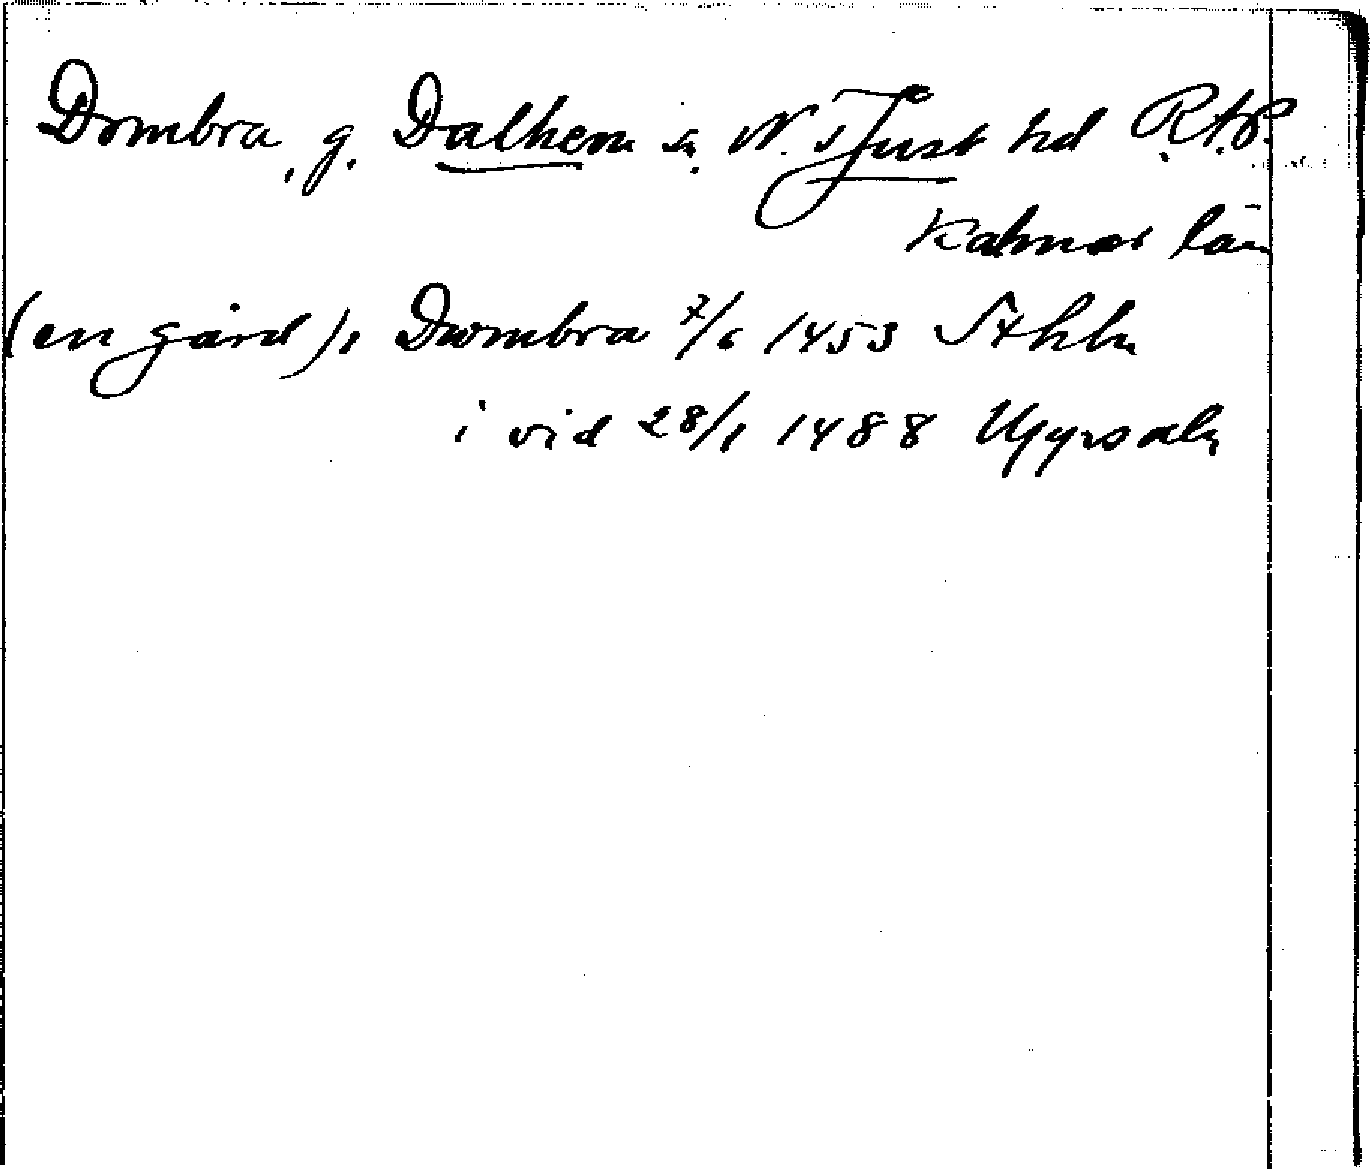 Dombra, g. Dalhem sn. N. Tjust hd R.A.P.
Kalmar län
(en gård), Duombra 7/6 1453 Sthlm
i vid 28/1 1488 Uppsala